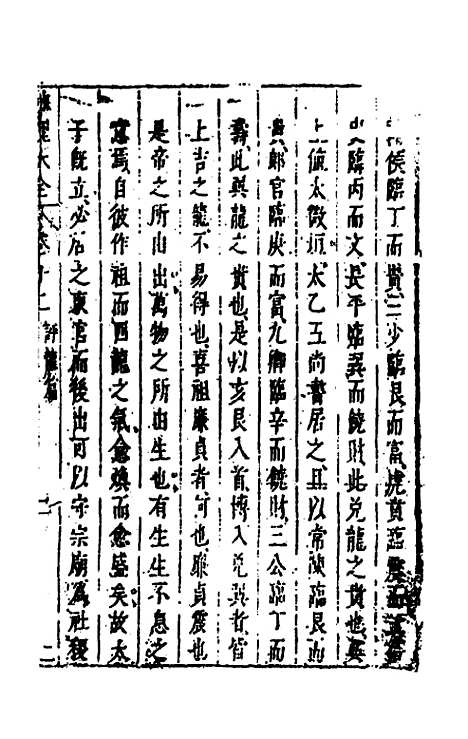 侯臨丁而貴三少臨艮而富虎賁臨震而
臨丙而文長平臨巽而饒財此兌龍之貴也巽
上值太微垣太乙五尚書居之且以常陳臨艮而
貴郎官臨庚而富九卿臨辛而饒財三公臨丁而
壽此巽龍之貴也是以亥艮入首博入兌巽者皆
上吉之龍不易得也喜祖廉貞者何也廉貞震也
是帝之所由出萬物之所由生也有生生不息之
意焉自彼作祖而四龍之氣愈煥而愈盛矣故太
子既立必居之東宮而後出可以守宗廟爲社稷
大全 十二 評龍 二